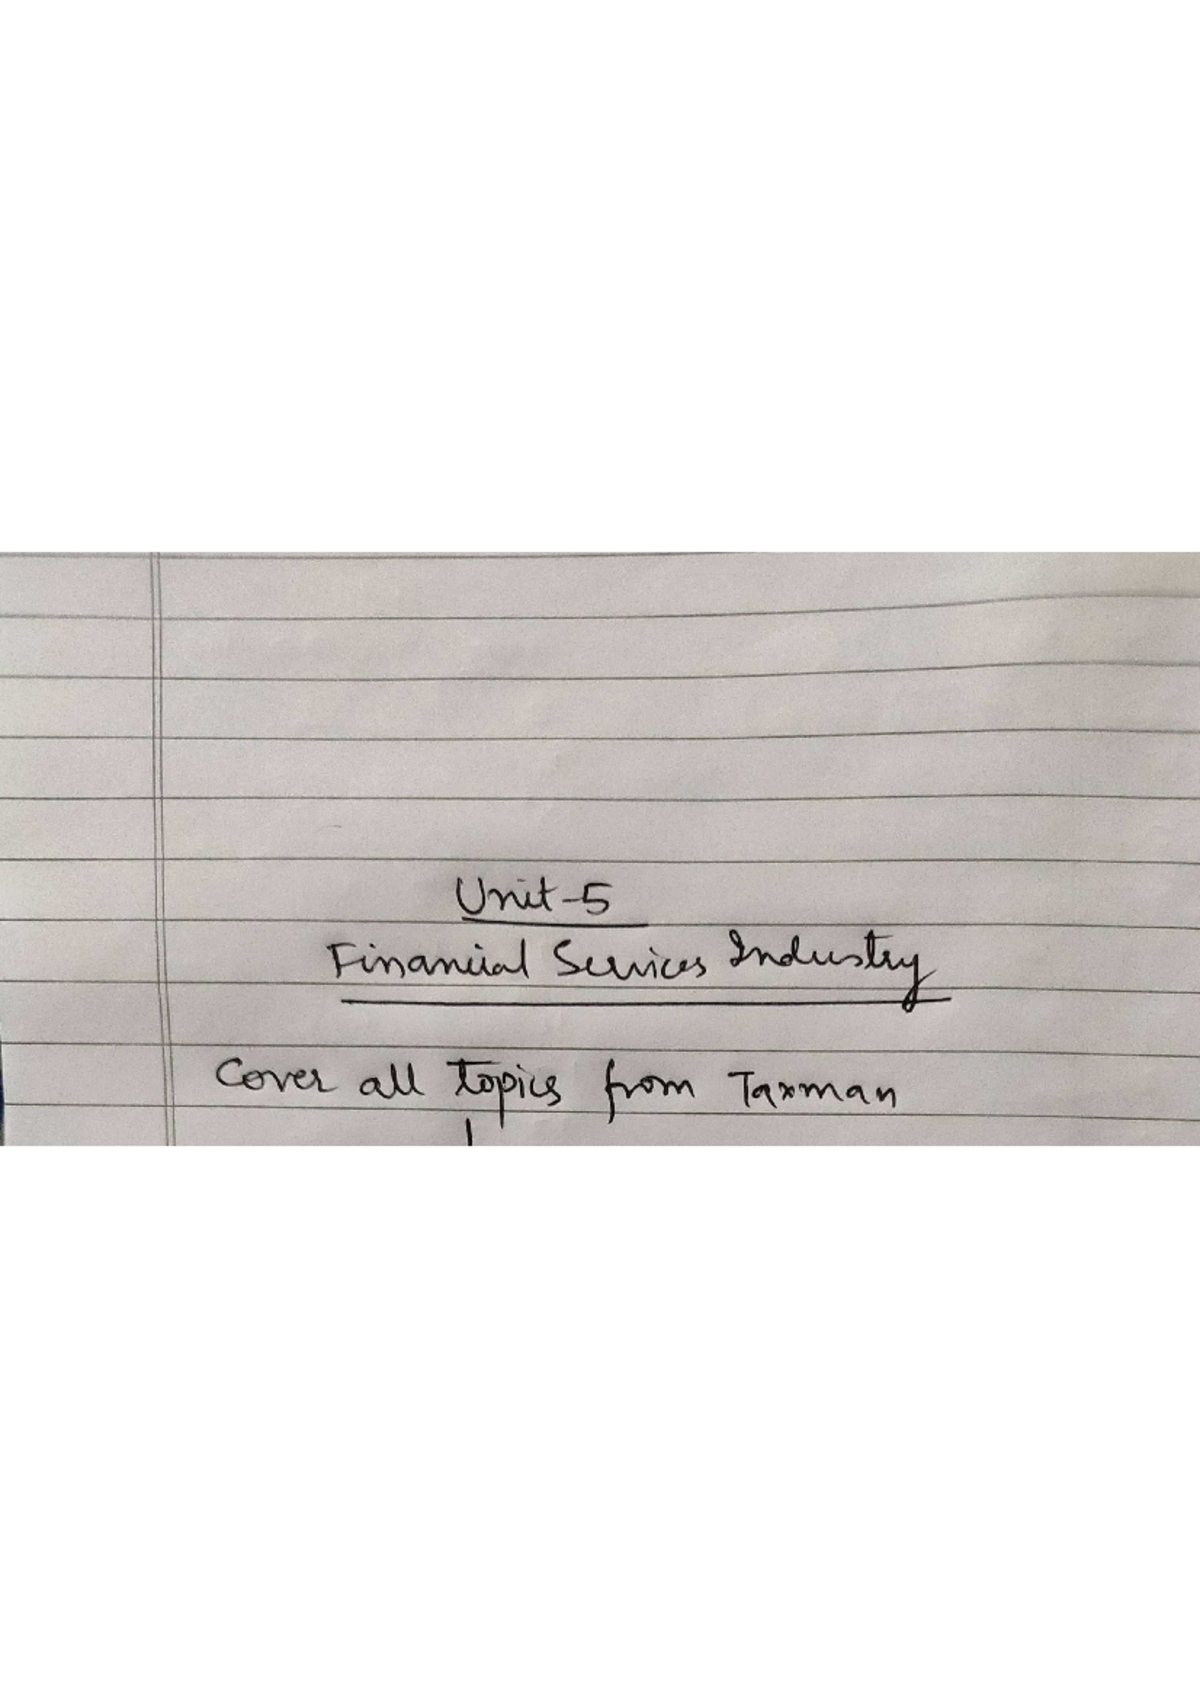 Unit-5
Financial Services Industry
Cover all topics from Taxman